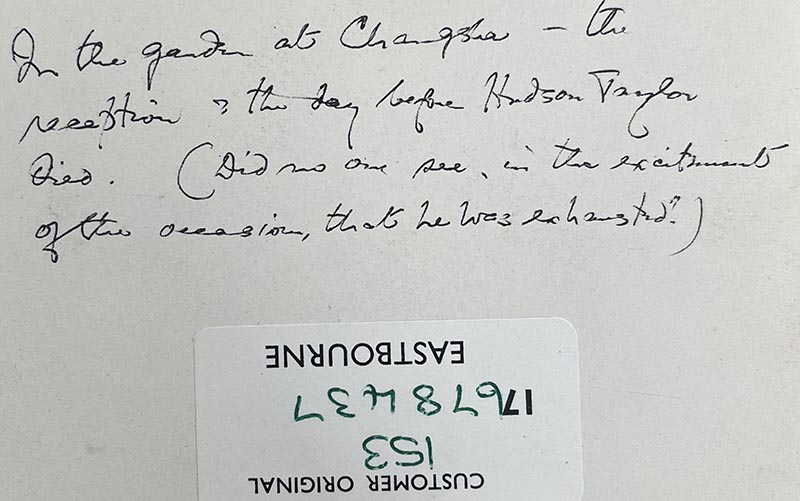 In the garden at Changsha – the
reception ? the day before Hudson Taylor
died. (Did no one see, in the excitement
of the occasion, that he was exhausted?)
CUSTOMER ORIGINAL
153
17678437
EASTBOURNE